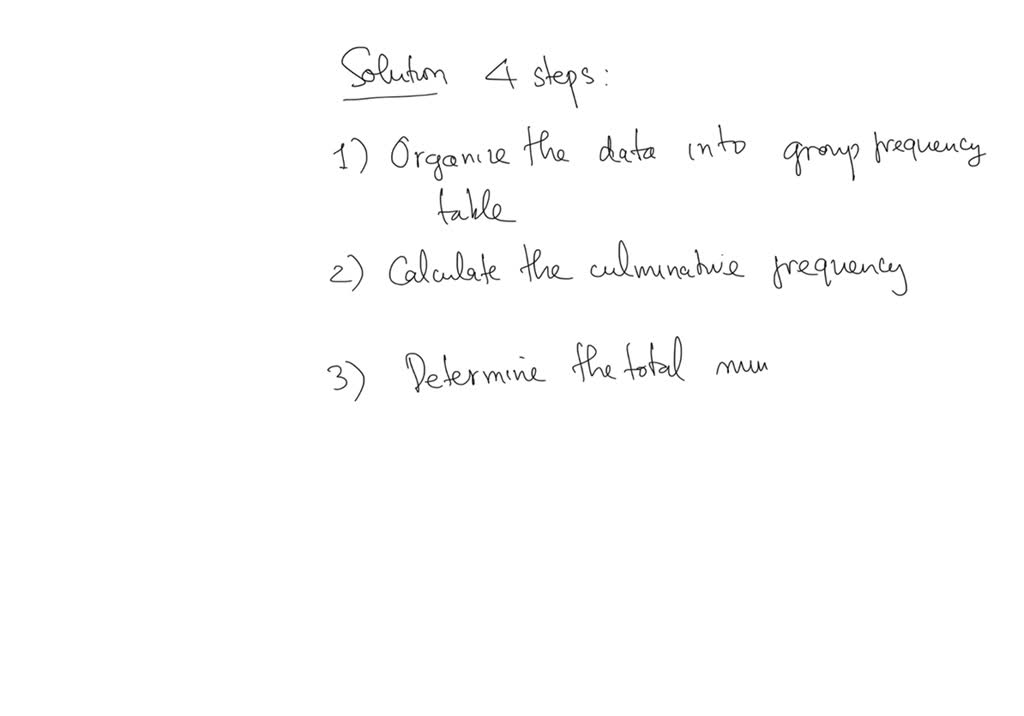 Solution 4 steps:
1) Organize the data into group frequency
table
2) Calculate the culminative frequency
3) Determine the total num